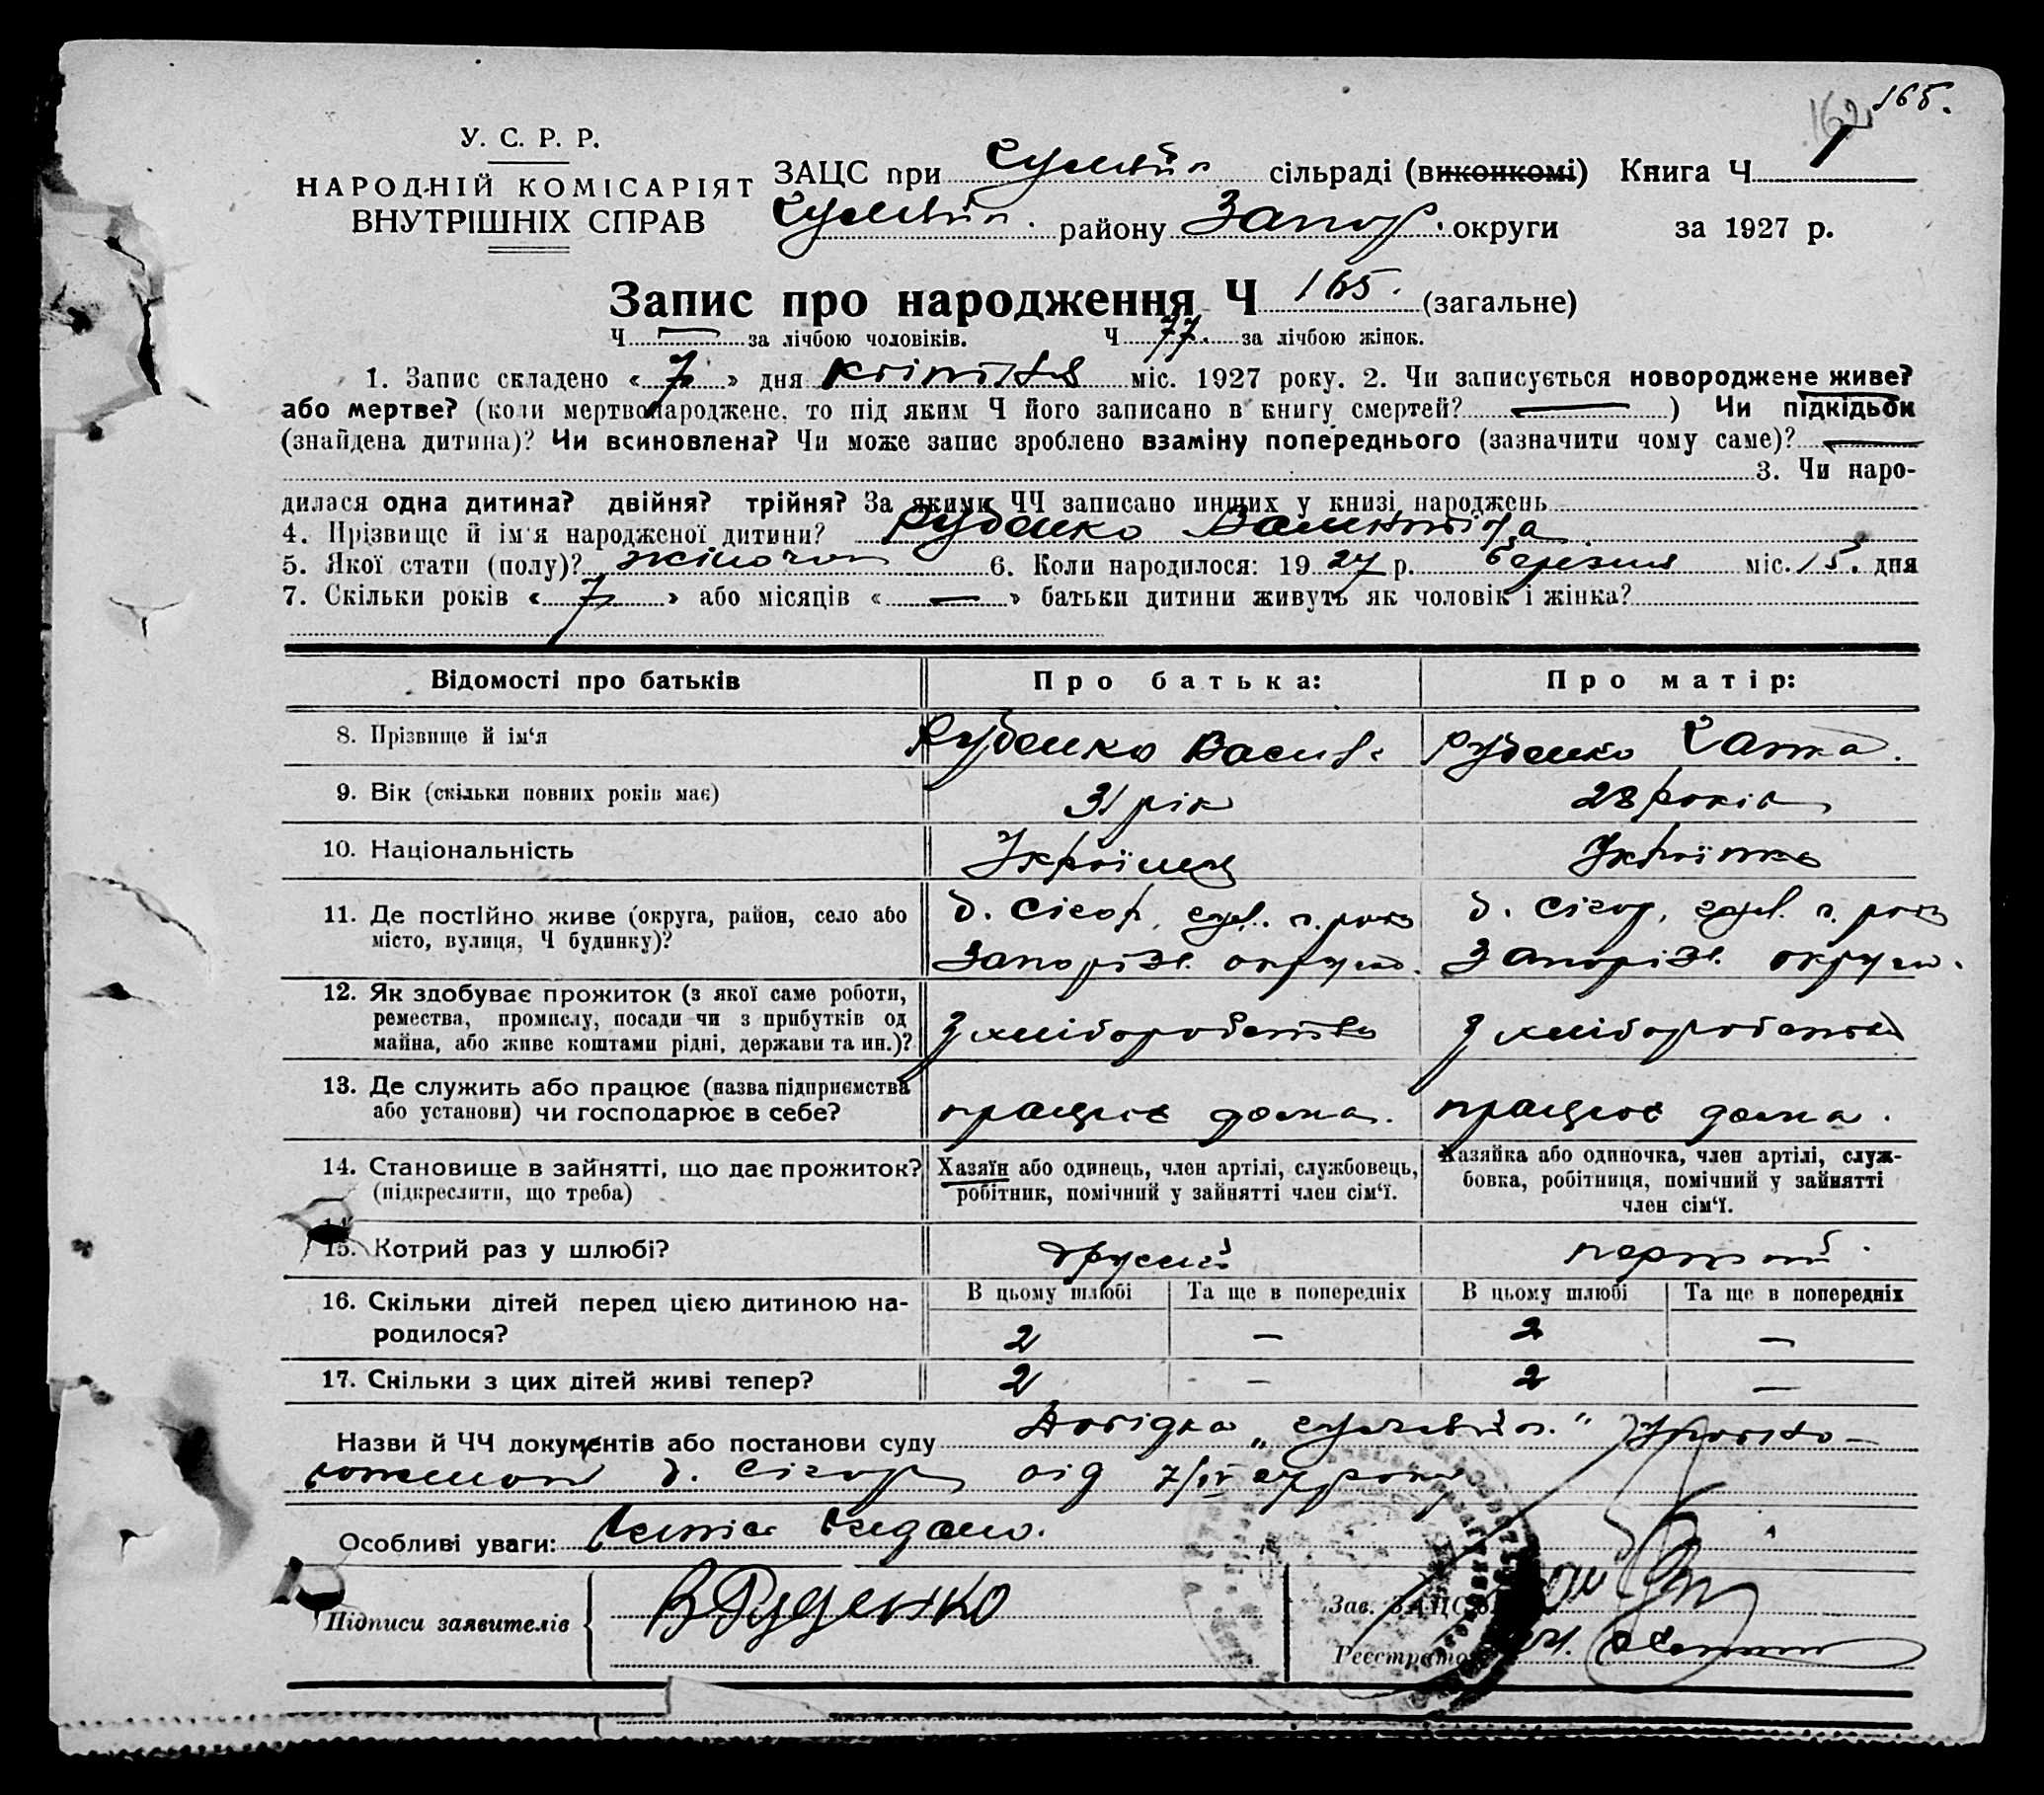 165.
162
У. С. Р. Р.
НАРОДНІЙ КОМІСАРІЯТ
ВНУТРІШНІХ СПРАВ
ЗАЦС при сільраді (виконкомі) Книга Ч 1
району Запор. округи за 1927 р.
Запис про народження Ч 165. (загальне)
Ч — за лічбою чоловіків. Ч 77. за лічбою жінок.
1. Запис складено « 7 » дня квітня міс. 1927 року. 2. Чи записується новороджене живе?
або мертве? (коли мертвонароджене, то під яким Ч його записано в книгу смертей? — ) Чи підкідьок
(знайдена дитина)? Чи всиновлена? Чи може запис зроблено взаміну попереднього (зазначити чому саме)? —
3. Чи наро-
дилася одна дитина? двійня? трійня? За якими ЧЧ записано инших у книзі народжень
4. Прізвище й ім'я народженої дитини? Руденко Валентіна
5. Якої стати (полу)? жіночої 6. Коли народилося: 1927 р. березня міс. 15. дня
7. Скільки років « 7 » або місяців « — » батьки дитини живуть як чоловік і жінка?
Відомості про батьків Про батька: Про матір:
8. Прізвище й ім'я Руденко Василь Руденко Ганна.
9. Вік (скільки повних років має) 31 рік 28 років
10. Національність Українец Українка
11. Де постійно живе (округа, район, село або
місто, вулиця, Ч будинку)?
Запоріз. округи. Запоріз. округи.
12. Як здобуває прожиток (з якої саме роботи,
ремества, промислу, посади чи з прибутків од
майна, або живе коштами рідні, держави та ин.)?
З хліборобства З хліборобства
13. Де служить або працює (назва підприємства
або установи) чи господарює в себе?
працює дома. працює дома.
14. Становище в зайнятті, що дає прожиток?
(підкреслити, що треба)
Хазяїн або одинець, член артілі, службовець,
робітник, помічний у зайнятті член сім'ї.
Хазяйка або одиночка, член артілі, служ-
бовка, робітниця, помічний у зайнятті
член сім'ї.
15. Котрий раз у шлюбі? другий перший.
16. Скільки дітей перед цією дитиною на-
родилося?
В цьому шлюбі Та ще в попередніх В цьому шлюбі Та ще в попередніх
2 — 2 —
17. Скільки з цих дітей живі тепер? 2 — 2 —
Назви й ЧЧ документів або постанови суду Довідка
від 7/IV 27 року
Особливі уваги: видано.
Підписи заявителів В Руденко
Зав. ЗАЦС'ом
Реєстратор